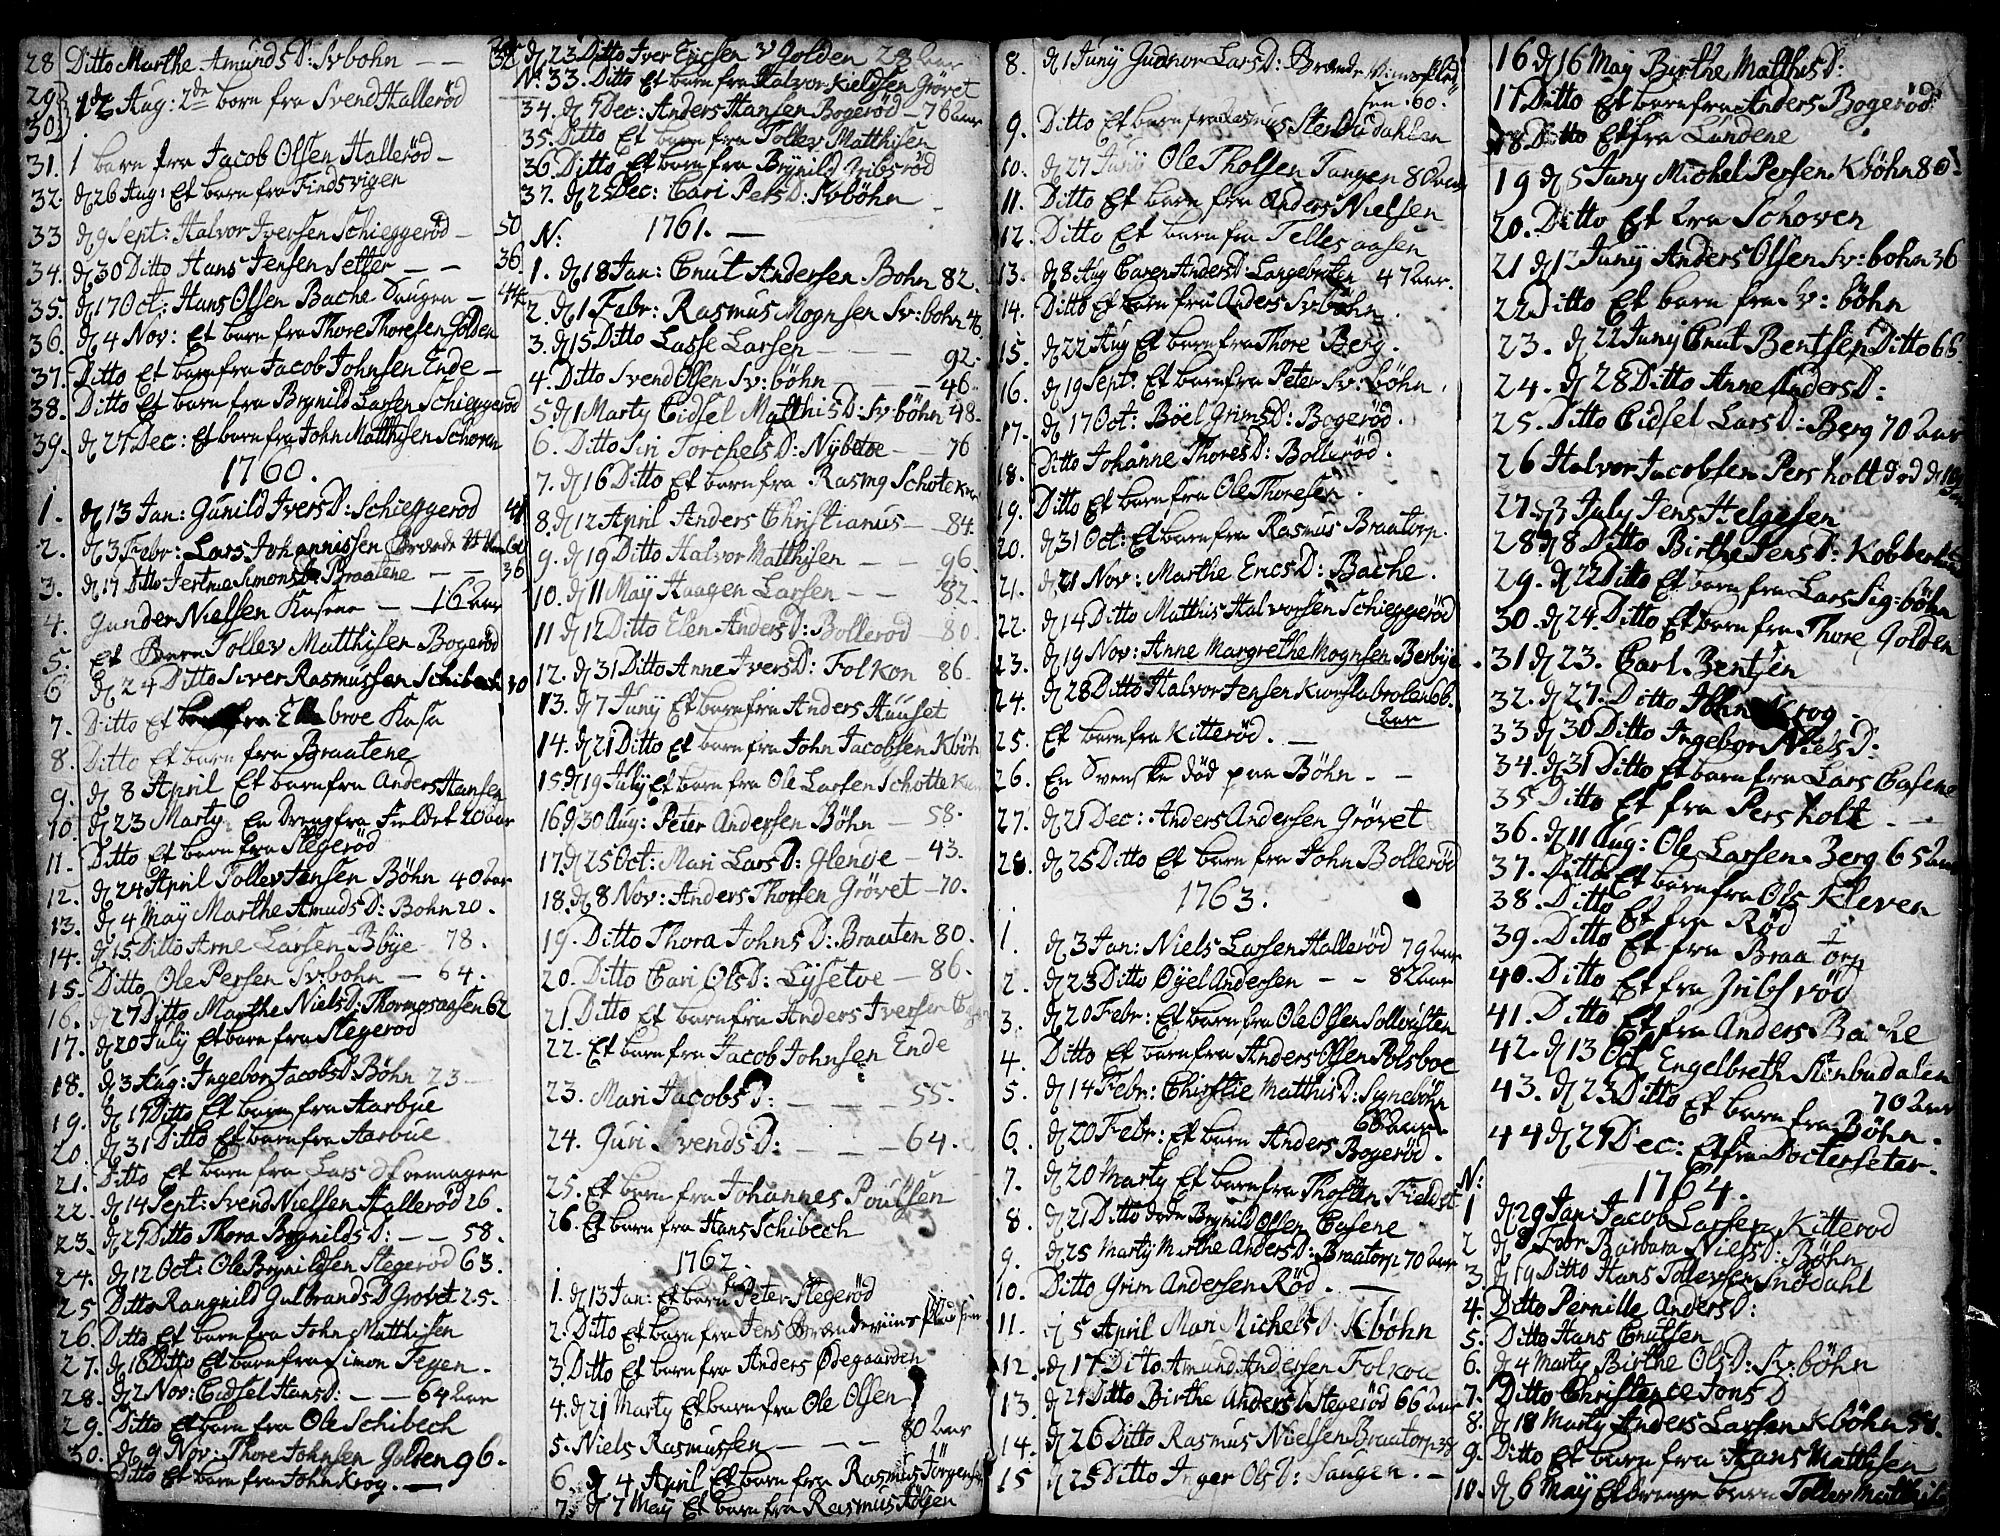 28 Ditto Marthe Amunds D: Svbohn — —
29 30 1 Aug: 2de born fra Svend Hallerød
31. 1 barn fra Jacob Olsen Hallerød —
32. d 26 Aug: Et barn fra Findsvigen
33 d 9 Sept: Halvor Iversen Schieggerød — 50
34. d 30 Ditto Hans Jensen Setter — — 36
35. d 17 Oct: Hans Olsen Bache Saugen — 44
36. d 4 Nov: Et barn fra Thore Thoresen Golden
37. Ditto Et barn fra Jacob Johnsen Ende —
38. Ditto Et barn fra Brynild Larsen Schieggerød
39. d 27 Dec: Et barn fra John Matthisen Schoven
1760.
1. d 13 Jan: Gunild Ivers D: Schieggerød 41
2. d 3 Febr: Lars Johannissen
3. d 17 Ditto Simons D Braatene — — 36
4. Gunder Nielsen Kasene — 16 aar
5. Et Barn Tollev Matthisen Bogerød
6 d 24 Ditto Siver Rasmussen Schibech 30
7. Ditto Et barn fra broe Kasa
8. Ditto Et barn fra Braatene
9. d 8 April Et barn fra Anders Hansen
10. d 23 Marty En Dreng fra Fieldet 20 aar
11. Ditto Et barn fra Stegerød
12. d 24 April Tollev Jensen Bøhn 40 aar
13. d 4 May Marthe Amuds D: Bohn 20.
14. d 15 Ditto Arne Larsen Bøye 78.
15. Ditto Ole Persen Svbohn — 64.
16. d 27 Ditto Marthe Niels D: Thormosaasen 62
17. d 20 July Et barn fra Stegerød
18. d 3 Aug: Ingebor Jacobs D Bøhn 23 —
19. d 17 Ditto Et barn fra Aarbue
20. d 31 Ditto Et barn fra Aarbue
21. Ditto Et barn fra Lars Skoemager
22. d 14 Sept: Svend Nielsen Hallerød 26.
23. d 27 Ditto Thora Brynilds D: — — 58.
24. d 12 Oct: Ole Brynildsen Stegerød 63.
25 Ditto Rangnild Gulbrands D Grøvet 25.
26. Ditto Et barn fra John Matthisen
27. d 16 Ditto Et barn fra Simon Tegen.
28. d 2 Nov: Cidsel Hans D: — — 64 aar
29. Ditto Et barn fra Ole Schibech
30. d 9 Nov: Thore Johnsen Golden 96.
Ditto Et barn fra John Krog. —
32 d 23 Ditto Iver Ericsen v Golden 28 aar
N: 33. Ditto Et barn fra Halvor Kieldsen Grövet
34. d 7 Dec: Anders Hansen Bogerød — 76 aar
35. Ditto Et barn fra Tollev Matthisen
36. Ditto Et barn fra Brynild Gribsrød
37. d 25 Dec: Cari Pers D: Svbøhn
N: 1761. —
1. d 18 Jan: Cnut Andersen Bohn 82.
2. d 1 Febr: Rasmus Mognsen Sv: bohn 46
3. d 15 Ditto Lasse Larsen — — 92.
4. Ditto Svend Olsen Sv: bøhn — — 46.
5. d 1 Marty Cidsel Matthis D: Sv: bøhn 48.
6. Ditto Siri Torchels D: Nybroe — 76
7. d 16 Ditto Et barn fra Rasmus
8. d 12 April Anders Christianus — 84.
9. d 19 Ditto Halvor Matthisen — — 96.
10. d 11 May Haagen Larsen — — 82.
11 d 12 Ditto Elen Anders D: Bollerød 80.
12. d 31 Ditto Anne Ivers D: Folkon 86.
13. d 7 Juny Et barn fra Anders Huuset
14. d 21 Ditto Et barn fra John Jacobsen Kbøhn
15 d 19 July Et barn fra Ole Larsen
16 d 30 Aug: Peter Andersen Bøhn — 58.
17. d 25 Oct: Mari Lars D: Glenge — 43.
18. d 8 Nov: Anders Thorsen Grövet — 70.
19. Ditto Thora Johns D: Braaten 80.
20. Ditto Cari Ols D: Lysetoe — 86.
21. Ditto Et barn fra Anders Iversen
22. Et barn fra Jacob Johnsen Ende
23. Mari Jacobs D: — — — 55.
24. Guri Svends D: — — — 64.
25. Et barn fra Johannes Poulsen
26. Et barn fra Hans Schibech
1762.
1. d 13 Jan: Et barn fra Peter Stegerød
2. Ditto Et barn fra Jens Brændeviinspladsen
3. Ditto Et barn fra Anders Ødegaarden
4. d 21 Marty Et barn fra Ole Olsen
5. Niels Rasmussen — — — 80 aar
6. d 4 April Et barn fra Rasmus Jörgensen
7. d 7 May Et barn fra Rasmus
8. d 1 Juny Gudnor Lars D: Brændeviinsplad
sen 60.
9. Ditto Et barn fra Rasmus Stenbudahlen
10. d 27 Juny Ole Tholsen Tangen 80 aar
11. Ditto Et barn fra Anders Nielsen
12. Ditto Et barn fra Tellesaasen
13. d 8 Aug Caren Anders D: Langebraten 47 aar.
14. Ditto Et barn fra Anders Svbøhn.
15. d 22 Aug Et barn fra Thore Berg.
16. d 19 Sept: Et barn fra Peter Sv: bøhn
17. d 17 Oct: Böel Grims D: Bogerød.
18. Ditto Johanne Thores D: Bollerød.
19. Ditto Et barn fra Ole Thoresen
20. d 31 Oct: Et barn fra Rasmus Braatorp.
21. d 21 Nov: Marthe Erics D: Bache.
22. d 14 Ditto Matthis Halvorsen Schieggerød
23. d 19 Nov: Anne Margrethe Mognsen Berbye
24. d 28 Ditto Halvor Jensen 66.
aar
25. Et barn fra Kitterød. —
26. En Svenske död paa Bøhn. —
27. d 21 Dec: Anders Andersen Grövet
28. d 25 Ditto Et barn fra John Bollerød
1763.
1. d 3 Jan: Niels Larsen Hallerød 79 aar
2. d 23 Ditto Öyel Andersen — — 82 aar
3. d 20 Febr: Et barn fra Ole Olsen Sollvisten
4. Ditto Et barn fra Anders Olsen Polsboe
5. d 14 Febr: Chirstie Matthis D: Signebøhn
68 aar.
6. d 20 Febr: Et barn Anders Bogerød.
7. d 20 Marty Et barn fra Thosten Fieldet
8. d 21 Ditto døde Brynild Olsen Casene
9. d 25 Marty Mirthe Anders D: Braatorp 70 aar
10. Ditto Grim Andersen Rød. —
11. d 5 April Mari Michels D: Kbøhn
12. d 17 Ditto Amund Andersen Folkoe
13. d 24 Ditto Birthe Anders D Stegerød 66 aar
14. d 26 Ditto Rasmus Nielsen Braatorp 38
15 d 25 Ditto Inger Ols D: Saugen. —
16 d 16 May Birthe Matthis D:
17 Ditto Et barn fra Anders Bogerød
18 Ditto Et fra Lundene
19 d 5 Juny Michel Persen Kbøhn 80
20. Ditto Et fra Schoven
21 d 12 Juny Anders Olsen Sv: bohn 36
22 Ditto Et barn fra Sv: bøhn
23. d 22 Juny Cnut Bentsen Ditto 66
24. d 28 Ditto Anne Anders D:
25. Ditto Cidsel Lars D: Berg 70 aar
26 Halvor Jacobsen Persholt død d
27. d 3 July Jens Helgesen
28 d 8 Ditto Birthe Jens D:
29. d 22 Ditto Et barn fra Lars Sig=bøhn
30. d 24. Ditto Et barn fra Thore Golden
31 d 23. Carl Bentsen
32. d 27. Ditto John Krog
33 d 30 Ditto Ingebor Niels D:
34. d 31 Ditto Et barn fra Lars Casene
35 Ditto Et fra Persholt. —
36. d 11 Aug: Ole Larsen Berg 65 aar
37. Ditto Et barn fra Ole Kleven
38. Ditto Et fra Rød
39. Ditto Et fra Braatorp
40. Ditto Et fra Gribsrød
41. Ditto Et fra Anders Bache
42. d 13 Oct Engelbreth Stenbudalen
70 aar
43. d 23 Ditto Et barn fra Bøhn.
44 d 27 Dec: Et fra Docterseter.
N: 1764.
1 d 29 Jan Jacob Larsen Kitterød
2 d 8 Febr Barbara Niels D: Bøhn
3. d 19 Ditto Hans Tollevsen Snödahl
4. Ditto Pernille Anders D:
5. Ditto Hans Cnutsen
6. d 4 Marty Birthe Ols D: Sv: bøhn
7. Ditto Christence Jons D
8. d 18 Marty Anders Larsen Kbøhn 58.
9. Ditto Et barn fra Hans Matthisen
10. d 6 May Et drenge barn Tollev Matthis